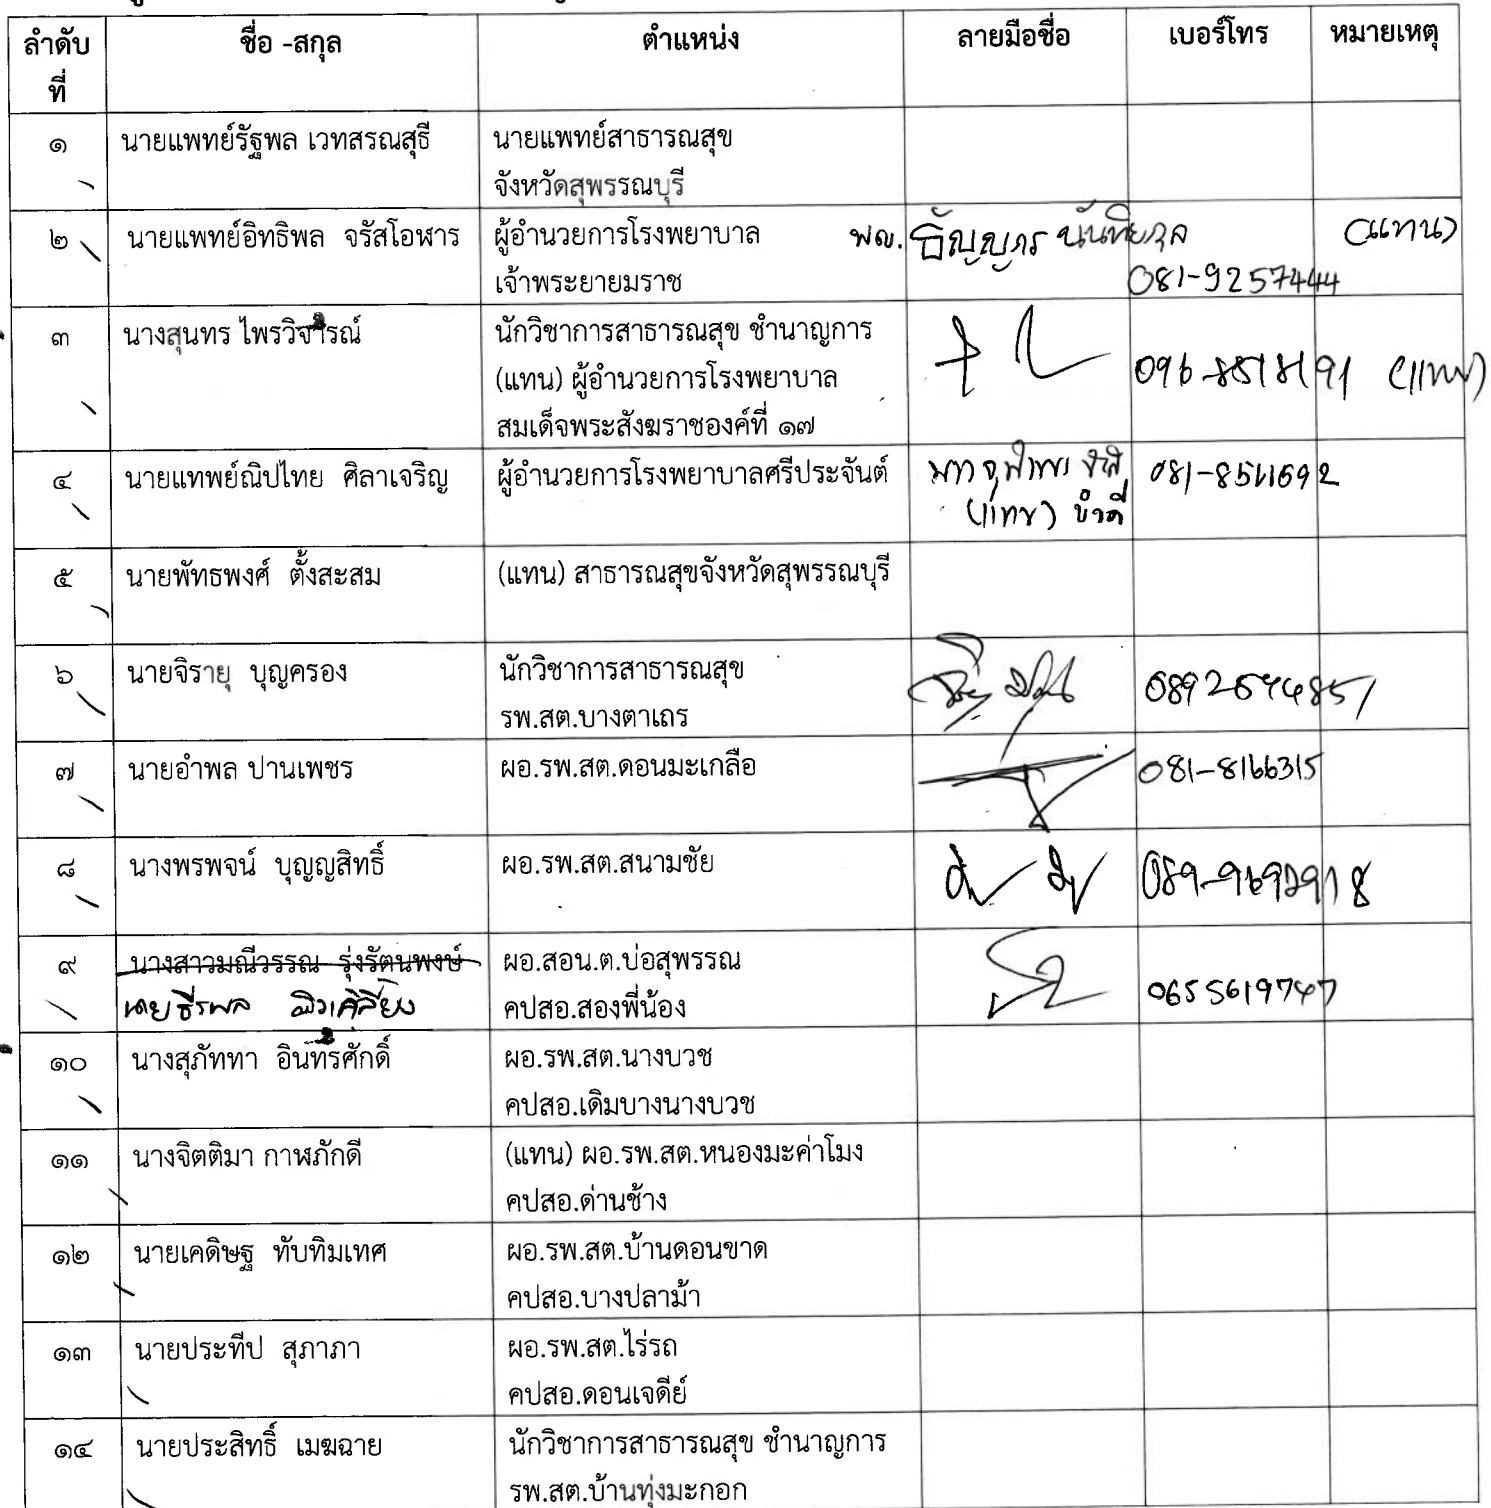 ลำดับ ชื่อ -สกุล ตำแหน่ง ลายมือชื่อ เบอร์โทร หมายเหตุ
ที่
๑ นายแพทย์รัฐพล เวทสรณสุธี นายแพทย์สาธารณสุข
จังหวัดสุพรรณบุรี
๒ นายแพทย์อิทธิพล จรัสโอฬาร ผู้อำนวยการโรงพยาบาล พญ. ธัญญภร (แทน)
เจ้าพระยายมราช 081-9257444
๓ นางสุนทร ไพรวิจารณ์ นักวิชาการสาธารณสุข ชำนาญการ
(แทน) ผู้อำนวยการโรงพยาบาล 096-8518191 (แทน)
สมเด็จพระสังฆราชองค์ที่ ๑๗
๔ นายแทพย์ณิปไทย ศิลาเจริญ ผู้อำนวยการโรงพยาบาลศรีประจันต์
(แทน)
๕ นายพัทธพงศ์ ตั้งสะสม (แทน) สาธารณสุขจังหวัดสุพรรณบุรี
๖ นายจิรายุ บุญครอง นักวิชาการสาธารณสุข
รพ.สต.บางตาเถร
๗ นายอำพล ปานเพชร ผอ.รพ.สต.ดอนมะเกลือ 081-8166315
๘ นางพรพจน์ บุญญสิทธิ์ ผอ.รพ.สต.สนามชัย
๙ นางสาวมณีวรรณ รุ่งรัตนพงษ์ ผอ.สอน.ต.บ่อสุพรรณ
นายธีรพล คปสอ.สองพี่น้อง 0655619747
๑๐ นางสุภัททา อินทรศักดิ์ ผอ.รพ.สต.นางบวช
คปสอ.เดิมบางนางบวช
๑๑ นางจิตติมา กาฬภักดี (แทน) ผอ.รพ.สต.หนองมะค่าโมง
คปสอ.ด่านช้าง
๑๒ นายเคดิษฐ ทับทิมเทศ ผอ.รพ.สต.บ้านดอนขาด
คปสอ.บางปลาม้า
๑๓ นายประทีป สุภาภา ผอ.รพ.สต.ไร่รถ
คปสอ.ดอนเจดีย์
๑๔ นายประสิทธิ์ เมฆฉาย นักวิชาการสาธารณสุข ชำนาญการ
รพ.สต.บ้านทุ่งมะกอก